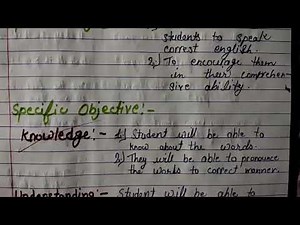 students to speak
correst english.
2.) To encourage them
in their comprehen-
sive ability.
Specific Objective:-
Knowledge:- 1.) Student will be able to
know about the words.
2.) They will be able to pronounce
the words to correct manner.
Understanding:- Student will be able to